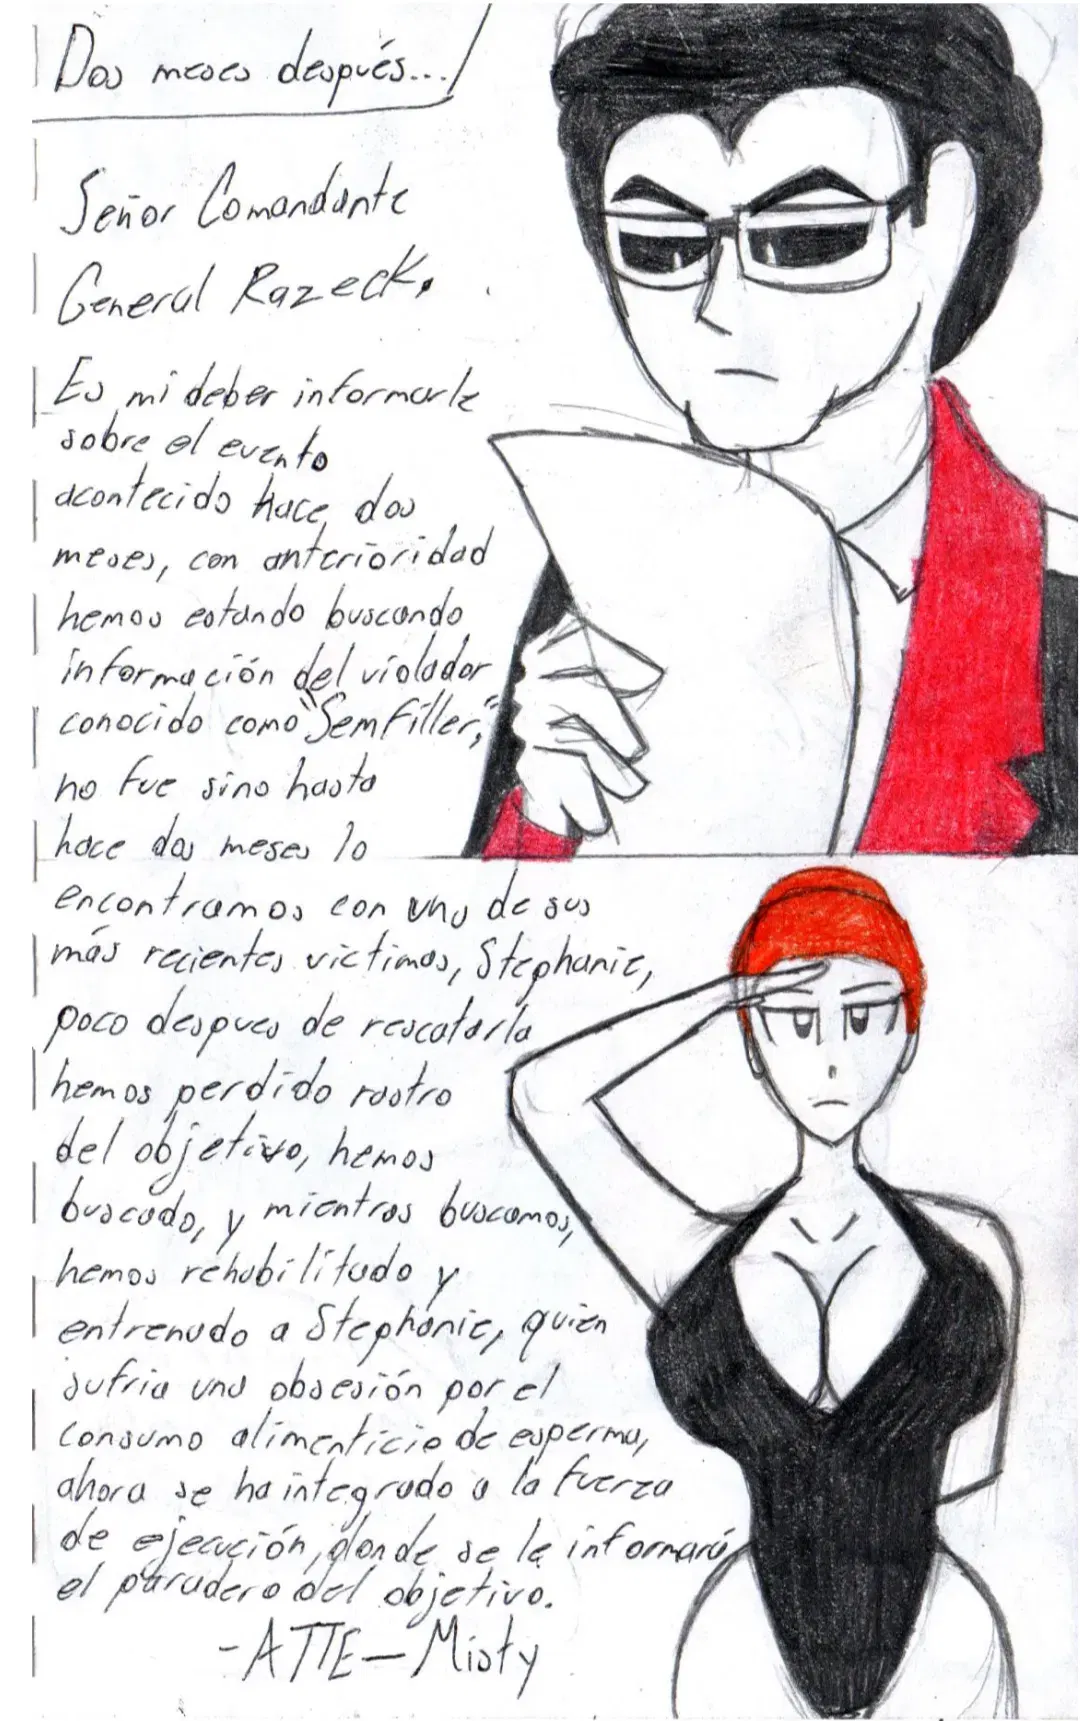 Dos meses después...
Señor Comandante
General Razeck,
Es mi deber informarle
sobre el evento
acontecido hace dos
meses, con anterioridad
hemos estando buscando
información del violador
conocido como "SemFiller",
no fue sino hasta
hace dos meses lo
encontramos con una de sus
más recientes victimas, Stephanie,
poco despues de rescatarla
hemos perdido rastro
del objetivo, hemos
buscado, y mientras buscamos,
hemos rehabilitado y
entrenado a Stephanie, quien
sufria una obsesión por el
consumo alimenticio de esperma,
ahora se ha integrado a la fuerza
de ejecución, donde se le informará
el paradero del objetivo.
-ATTE-Misty